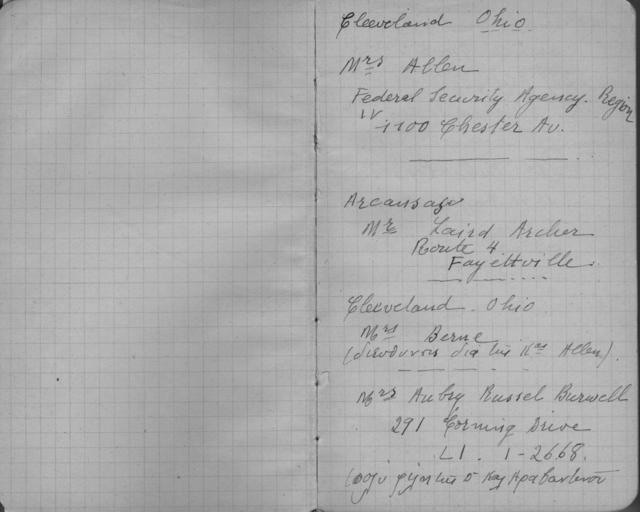 Cleeveland Ohio
Mrs Allen
Federal Security Agency. Region
IV
1100 Chester Av.
Arcansas
Mr Laird Archer
Route 4
Fayettville.
Cleeveland. Ohio
Mrs Berne
(διευθυνσις δια της Mrs Allen).
Mrs Aubry Russel Burwell
291 Corning Drive
L1. 1-2668.